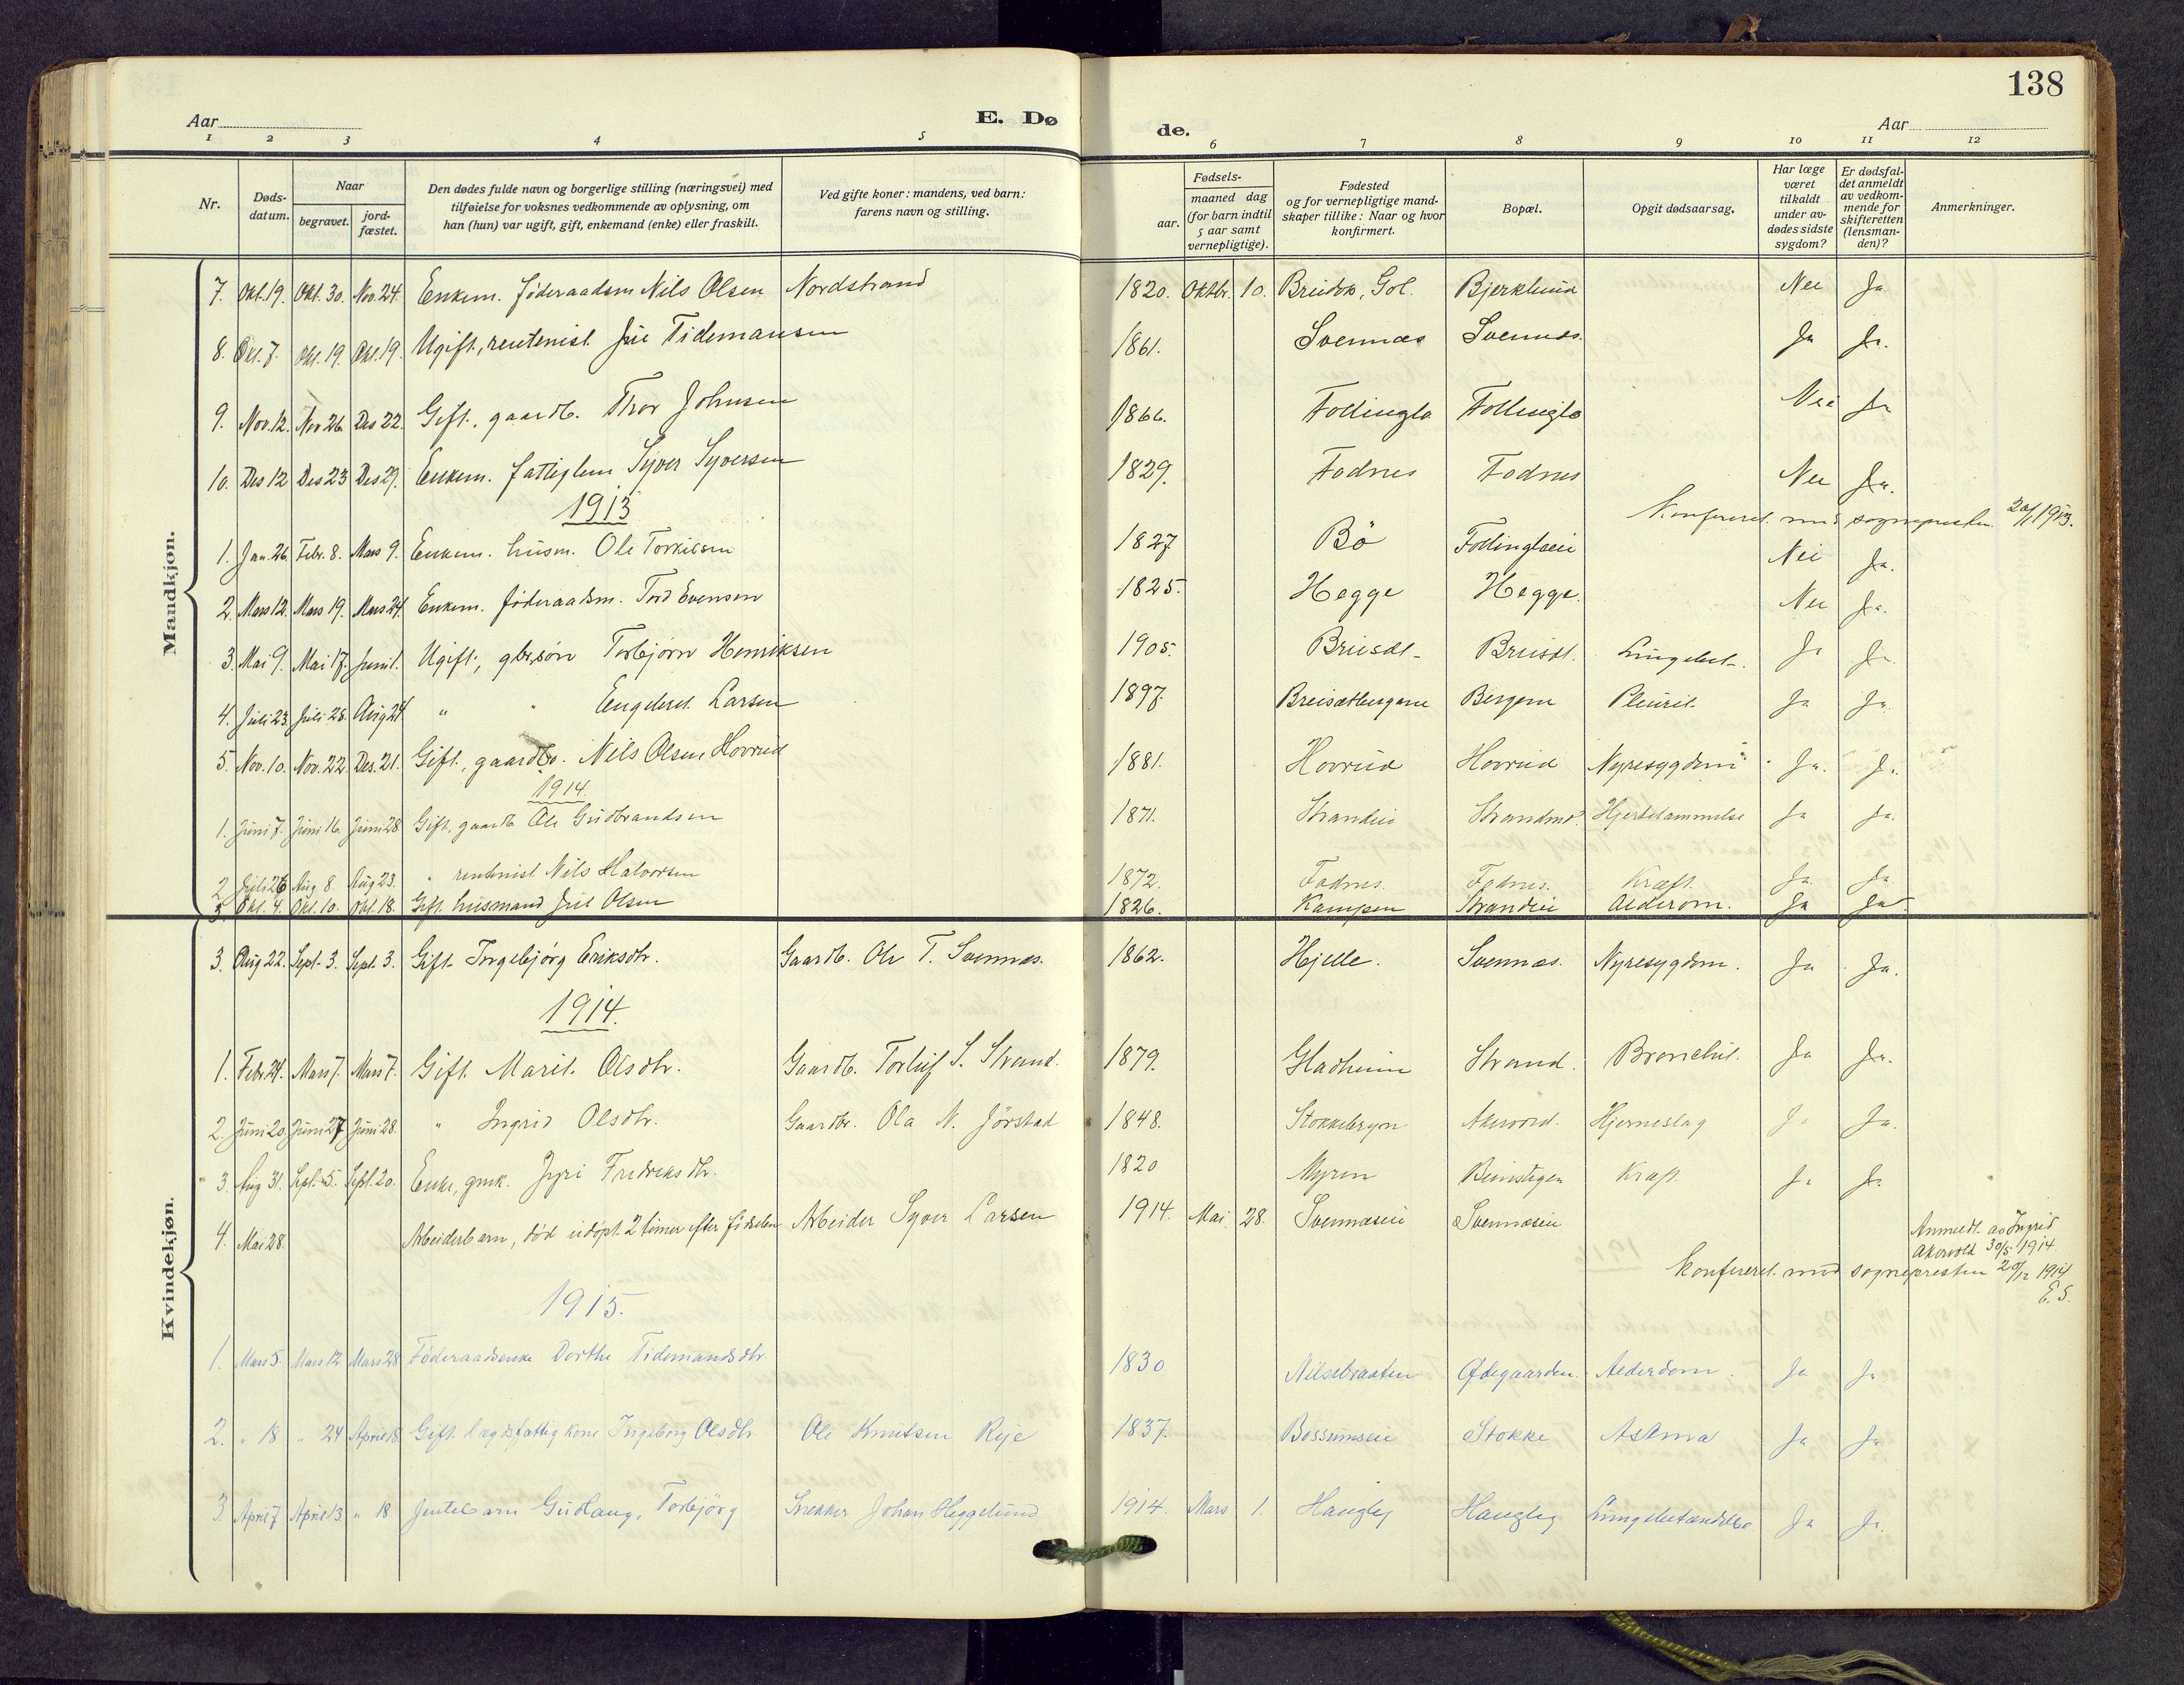 138
Aar
E. Dø
de.
Aar
1 2 3 4 5 6 7 8 9 10 11 12
Nr.
Døds-
datum.
Naar
begravet.
jord-
fæstet.
Den dødes fulde navn og borgerlige stilling (næringsvei) med
tilføielse for voksnes vedkommende av oplysning, om
han (hun) var ugift, gift, enkemand (enke) eller fraskilt.
Ved gifte koner: mandens, ved barn:
farens navn og stilling.
Fødsels-
aar.
maaned dag
(for barn indtil
5 aar samt
vernepligtige).
Fødested
og for vernepligtige mand-
skaper tillike: Naar og hvor
konfirmert.
Bopæl.
Opgit dødsaarsag.
Har læge
været
tilkaldt
under av-
dødes sidste
sygdom?
Er dødsfal-
det anmeldt
av vedkom-
mende for
skifteretten
(lensman-
den)?
Anmerkninger.
Mandkjøn.
7. Okt. 19. Okt. 30. Nov. 24. Enkem. føderaadsm Nils Olsen Nordstrand 1820. Oktbr. 10. Gol. Bjerklund Nei Ja
8. Okt. 7. Okt. 19. Okt. 19. Ugift, rentenist Tidemansen 1861. Svennæs Svennæs. Ja Ja.
9. Nov. 12. Nov 26. Des 22. Gift, gaardb. Thor Johnsen 1866. Follinglo Follinglo Nei Ja
10. Des 12 Des 23 Des 29. Enkem. fattiglem Syver Syversen 1829. Fodnes Fodnes Nei Ja.
1913
Konfereret med sognepresten 20/1 1913.
1. Jan. 26. Febr. 8. Mars 9. Enkem. husm. Ole Torkilsen 1827 Bö Follingloeie Nei Ja.
2. Mars 12. Mars 19. Mars 24. Enkem. føderaadsm. Tord Evensen 1825. Hegge Hegge. Nei Ja.
3. Mai 9. Mai 17. Juni 1. Ugift, gbr.søn Torbjørn Henriksen 1905. Lungebet. Ja Ja
4. Juli 23. Juli 28. Aug 24 " " Engebret Larsen 1897. Breisætbergene Bergene Pleurit. Ja Ja
5. Nov. 10. Nov. 22. Des. 21. Gift, gaardbr. Nils Olsen Hovrud 1881. Hovrud Hovrud Nyresygdom Ja. Ja.
1914.
1. Juni 7. Juni 16. Juni 28 Gift, gaardb. Ole Gudbrandsen 1871. Hjertelammelse Ja Ja.
2 Juli 26 Aug 8. Aug 23. " rentenist Nils Halvorsen 1872. Fodnes. Fodnes. Kræft. Ja Ja
3 Okt. 4. Okt. 10. Okt. 18. Gift husmand Juel Olsen 1826. Kampen Strandeie Alderdom. Ja Ja
Kvindekjøn.
3. Aug 22. Sept. 3. Sept. 3. Gift Ingebjørg Eriksdtr. Gaardb. Ole T. Svennæs. 1862. Hjelle. Svennæs. Nyresygdom. Ja Ja.
1914.
1. Febr. 24. Mars 7. Mars 7. Gift Marit Olsdtr. Gaardb. Torleif S. Strand. 1879. Gladheim Strand. Bronchit. Ja Ja.
2. Juni 20. Juni 27 Juni 28. " Ingrid Olsdtr. Gaardbr. Ola N. Jørstad 1848. Stokkebryn Akervold. Hjerneslag Ja Ja.
3. Aug 31. Sept. 5. Sept. 20. Enke, gmk. Jøri Fredriksdtr. 1820 Myren Beinstigen Kræft Ja Ja
4. Mai 28. Arbeiderbarn, død udøpt 2 timer efter fødselen Arbeider Syver Larsen 1914. Mai 28. Svennæseie Svennæseie
Anmeldt av Ingrid
Akervold 30/5 1914.
Konfereret med sognepresten 20/12 1914
E. S.
1915.
1. Mars 5. Mars 12 Mars 28 Föderaadsenke Dorthe Tidemandsdtr. 1830. Nilsebraaten Ødegaarden. Alderdom. Ja Ja
2. " 18 " 24 April 18 Gift. lægdsfattig kone Ingeborg Olsdtr Ole Knutsen Reje 1837. Bossumseie Stokke Astma Ja Ja
3. April 7 April 13 " 18 Jentebarn Gudlaug, Torbjörg Snekker Johan Heggelund 1914. Mars 1. Haugly Haugly Lungebetændelse Ja Ja.